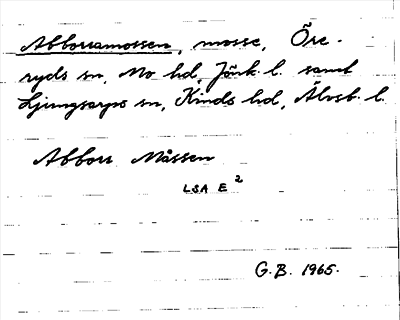 Abborramossen, mosse, Öre-
ryds sn, Mo hd, Jönk. l. samt
Ljungsarps sn, Kinds hd, Älvsb. l.
Abborr Måssen
LSA E²
G.B. 1965.